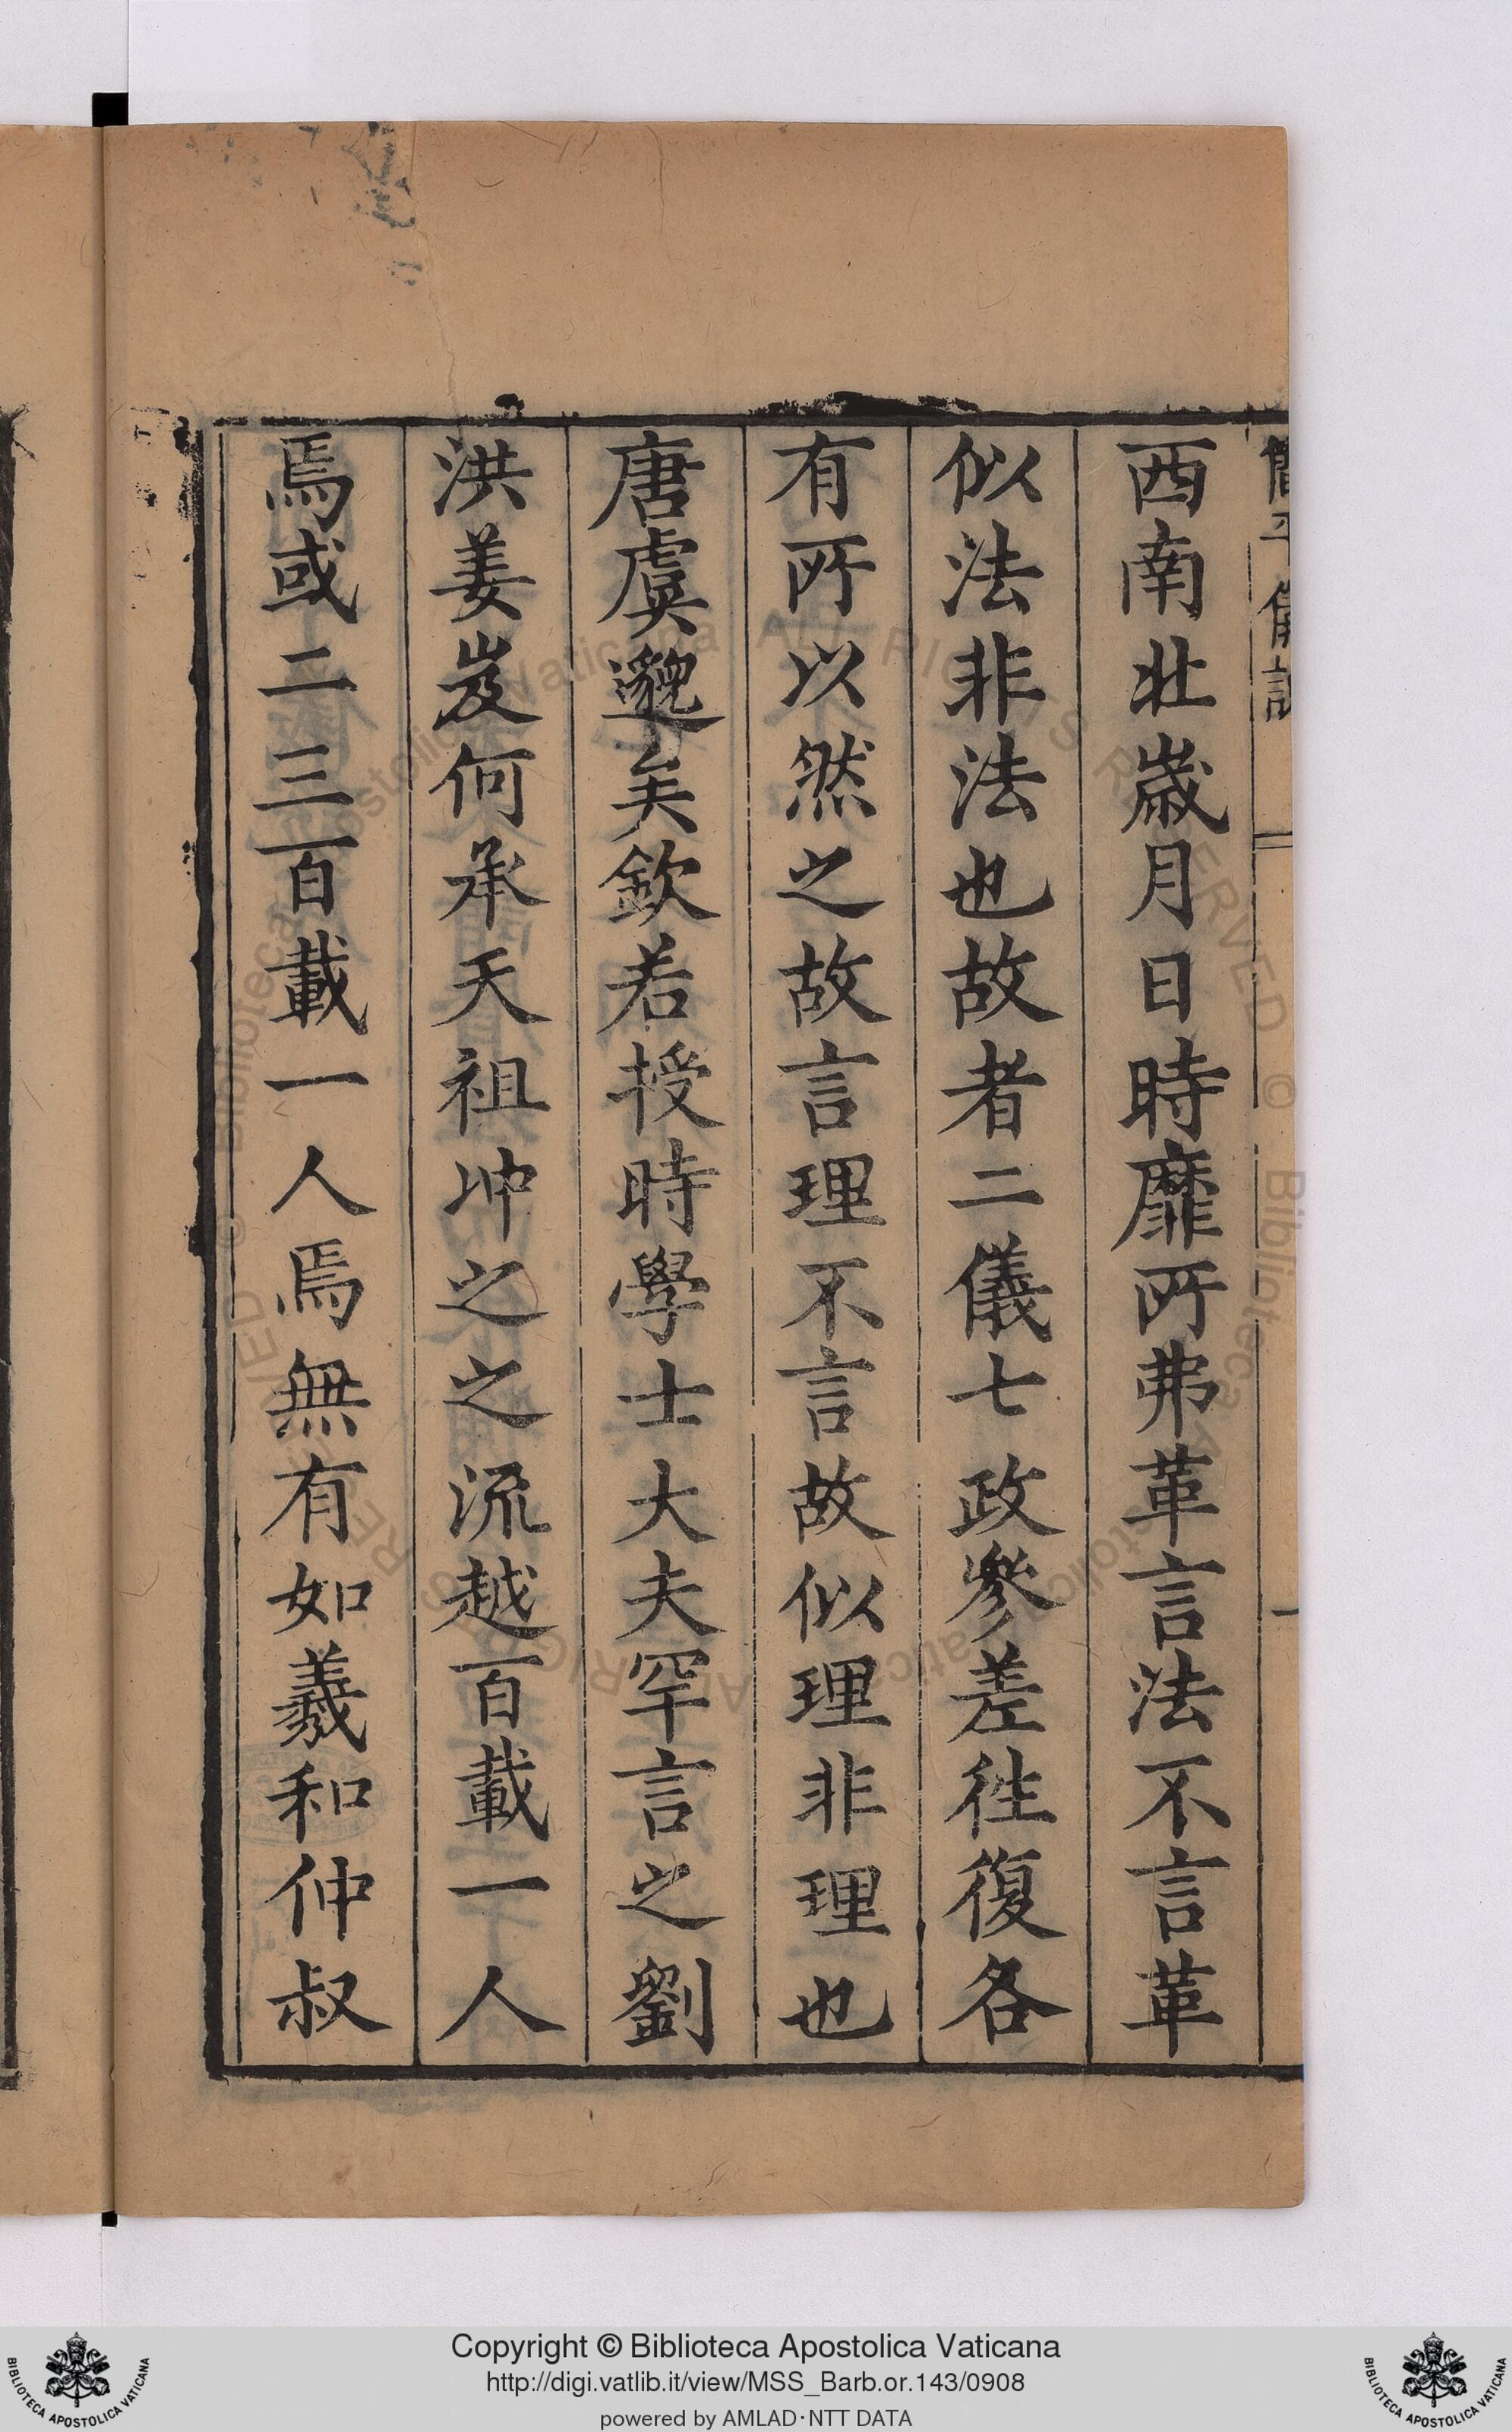 簡平儀說
一
西南北歲月日時靡所弗革言法不言革
似法非法也故者二儀七政參差徃復各
有所以然之故言理不言故似理非理也
唐虞邈矣欽若授時學士大夫罕言之劉
洪姜岌何承天祖冲之之流越百載一人
焉或二三百載一人焉無有如羲和仲叔
Copyright © Biblioteca Apostolica Vaticana
http://digi.vatlib.it/view/MSS_Barb.or.143/0908
powered by AMLAD·NTT DATA
BIBLIOTECA APOSTOLICA VATICANA
BIBLIOTECA APOSTOLICA VATICANA